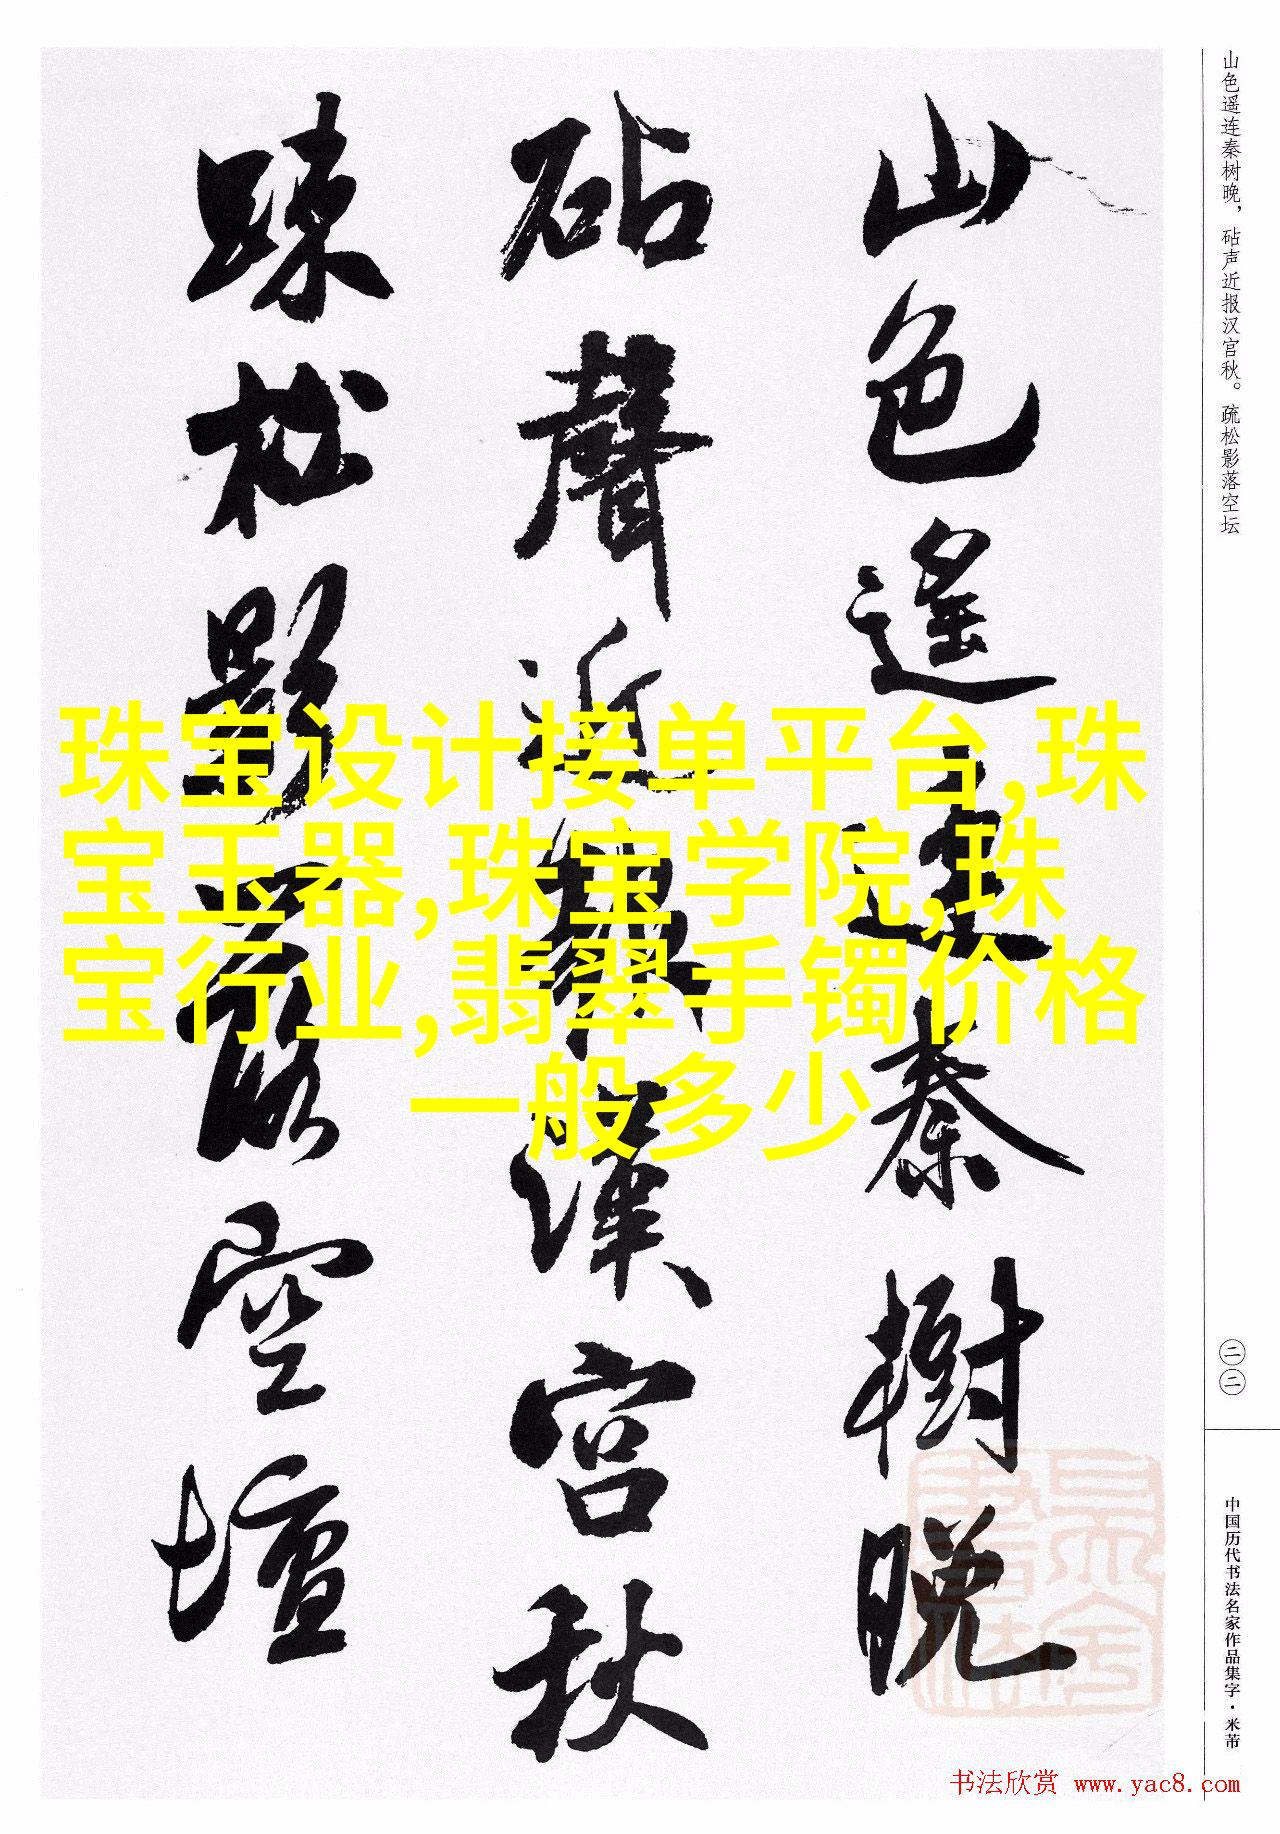 山色遥连秦树晚，砧声近报汉宫秋。疏松影落空坛
山色遙連秦樹晚
砧聲近報漢宮秋
踈松影落空壇
珠宝设计接单平台,珠
宝玉器,珠宝学院,珠
宝行业,翡翠手镯价格
一般多少
二二
中国历代书法名家作品集字·米芾
书法欣赏 www.yac8.com